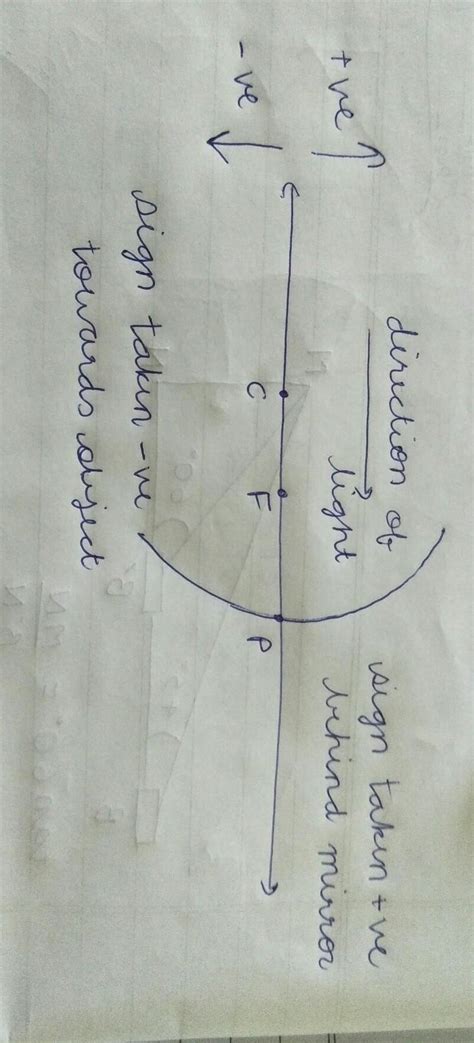 +ve
-ve
direction of
light
sign taken +ve
behind mirror
C
F
P
sign taken -ve
towards object